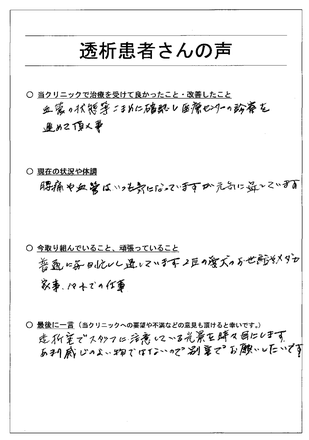 透析患者さんの声
○ 当クリニックで治療を受けて良かったこと・改善したこと
血管の状態等こまめに確認し医療センターの診察を
進めて頂く事
○ 現在の状況や体調
腰痛や血管はいつも気になっていますが元気に過しています
○ 今取り組んでいること、頑張っていること
普通に毎日忙しく過しています。2匹の愛犬のお世話やメダカ
家事、パートでの仕事
○ 最後に一言(当クリニックへの要望や不満などの意見も頂けると幸いです。)
透析室でスタッフに注意している光景を時々目にします。
あまり感じのよい物ではないので別室でお願いしたいです